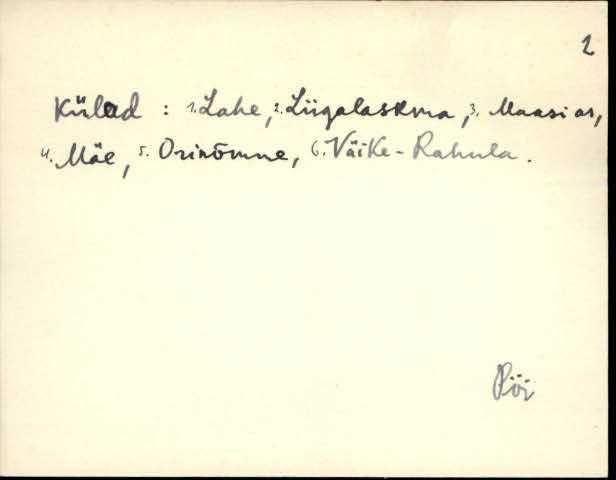 2
Külad : 1. Lahe, 2. Liigalaskma, 3. Maasi as,
4. Mäe, 5. Orinõmme, 6. Väike-Rahula.
Pöi